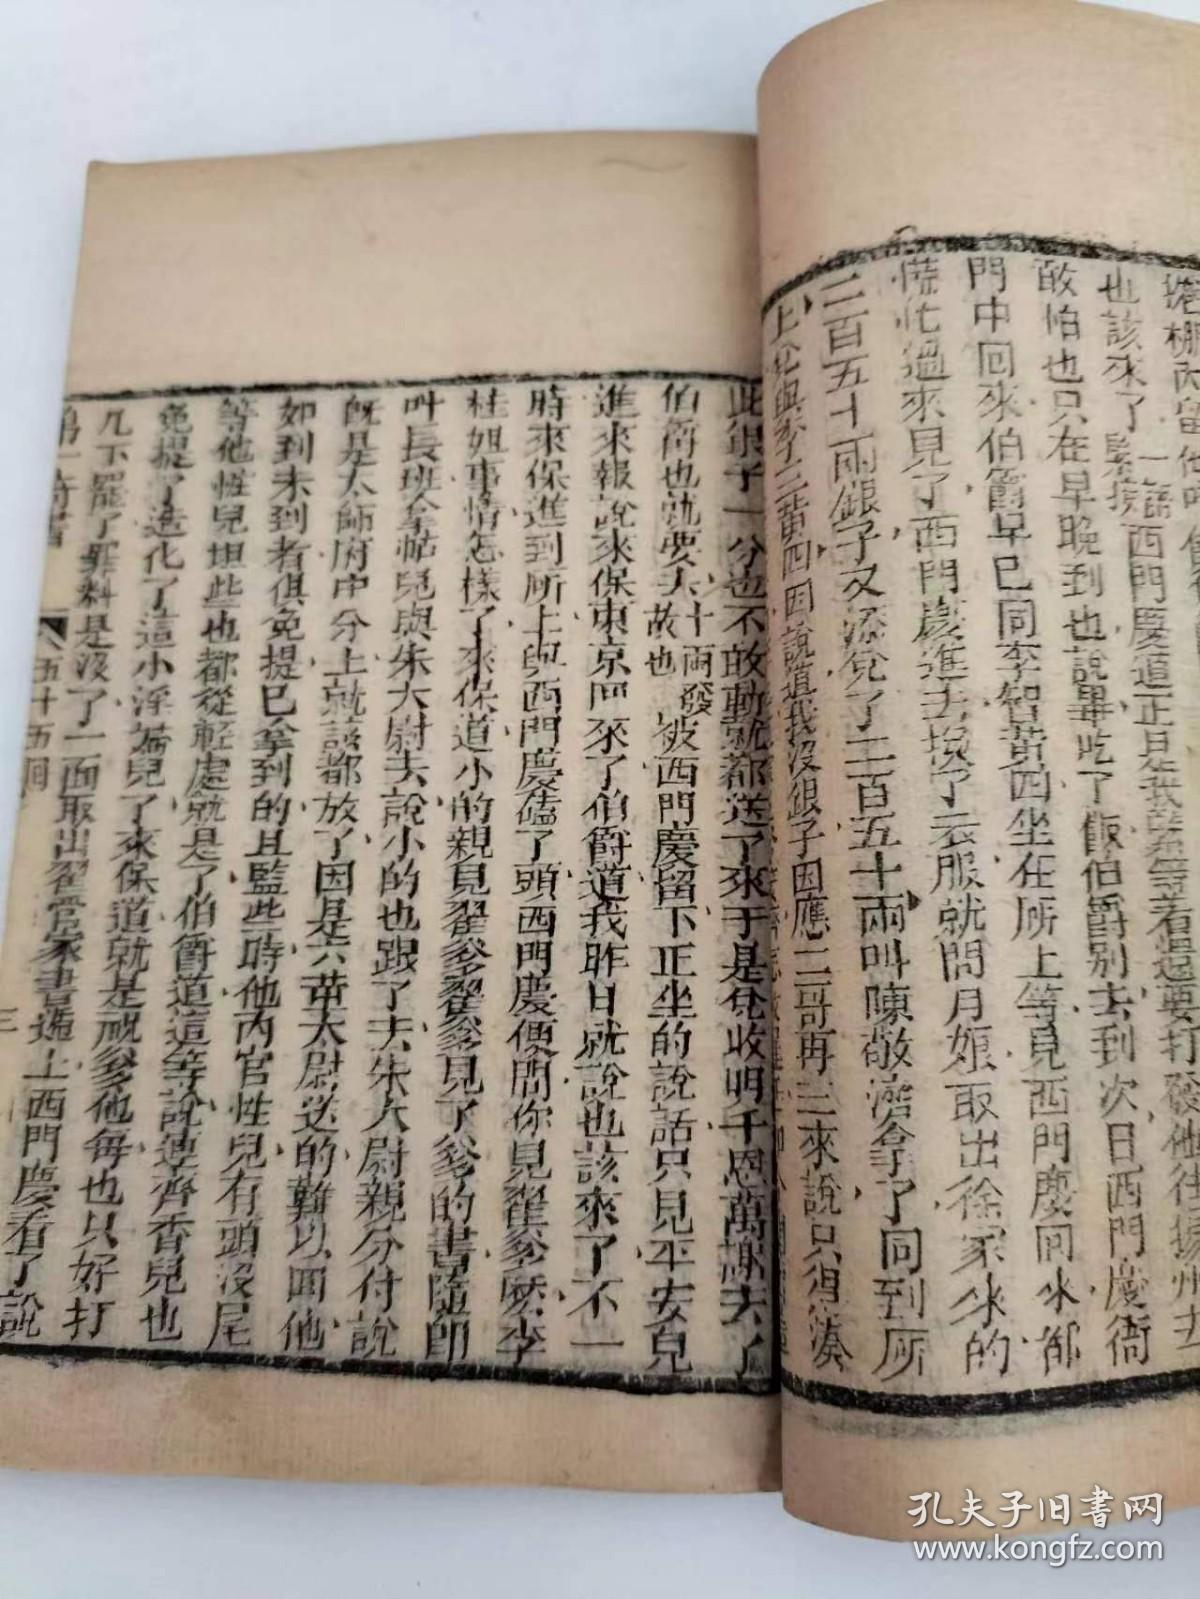 搭棚
也該來了
西門慶道正是我
敢怕也只在早晚到也說畢吃了飯伯爵別去到次日西門慶衙
門中回來伯爵早已同李智黃四坐在厛上等見西門慶回來都
慌忙過來見了西門慶進去換了衣服就問月娘取出徐家來的
二百五十兩銀子又添兌了二百五十兩叫陳敬濟拿了同到厛
上兌與李三黃四因說道我沒銀子因應二哥再三來說只得湊
此銀子一分也不敢動就都送了來于是兌收明千恩萬謝去了
伯爵也就要去十兩發故也被西門慶留下正坐的說話只見平安兒
進來報說來保東京回來了伯爵道我昨日就說也該來了不一
時來保進到厛上與西門慶磕了頭西門慶便問你見翟爹麽李
桂姐事情怎樣了來保道小的親見翟爹翟爹見了爹的書隨即
叫長班拿帖兒與朱太尉去說小的也跟了去朱太尉親分付說
既是太師府中分上就該都放了因是六黃太尉送的難以回他
如到未到者俱免提已拿到的且監些時他內官性兒有頭沒尾
等他性兒坦些也都從輕處就是了伯爵道這等說連齊香兒也
免提了造化了這小淫婦兒了來保道就是祝爹他每也只好打
几下罷了罪料是沒了一面取出翟管家書遞上西門慶看了說
第一奇書
五十五囘
三
孔夫子旧书网
www.kongfz.com